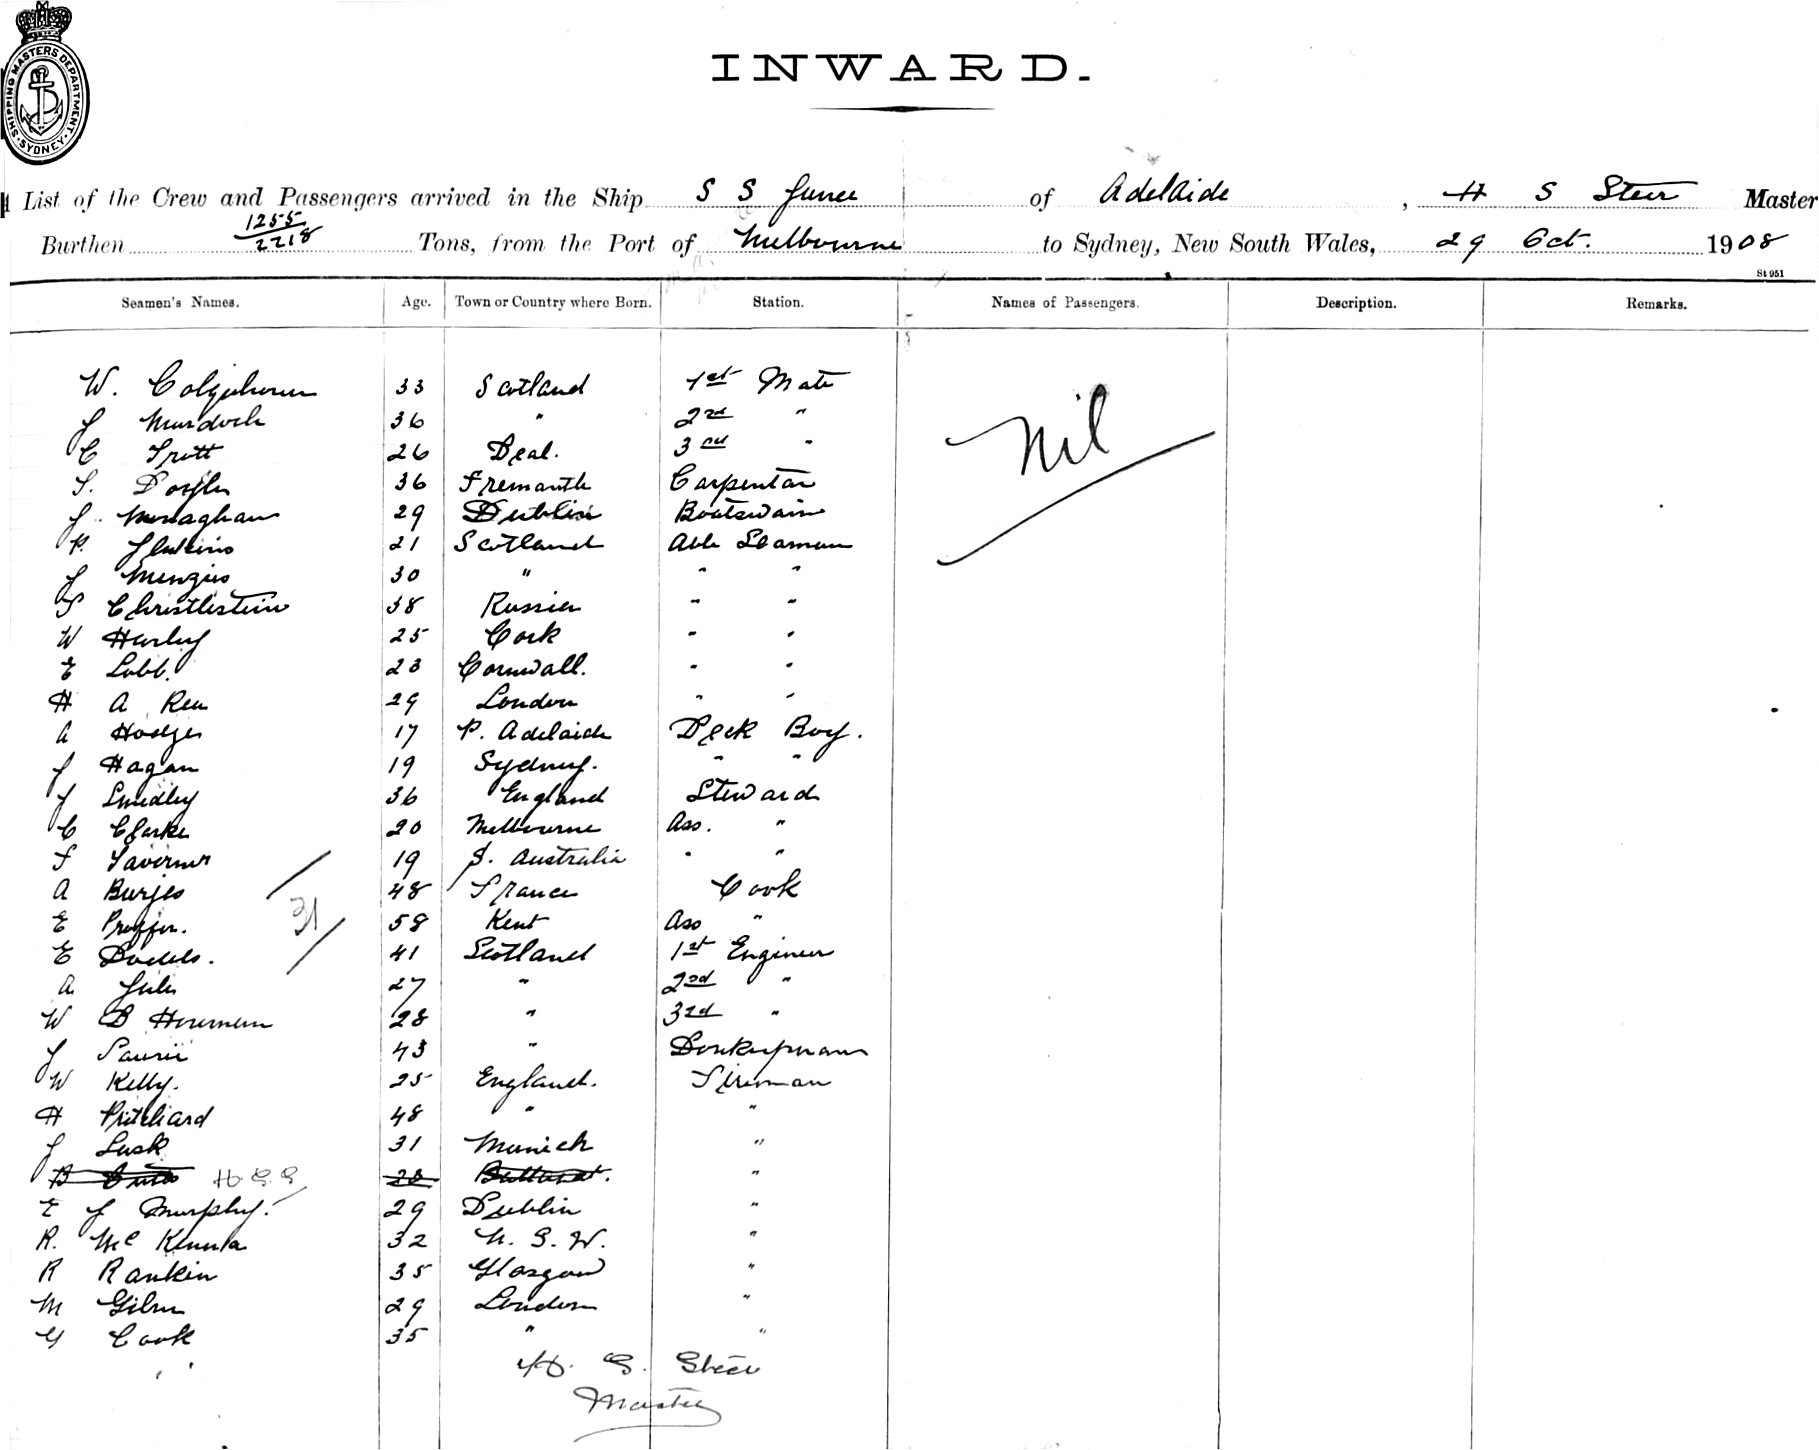 SHIPPING MASTERS DEPARTMENT SYDNEY
INWARD.
List of the Crew and Passengers arrived in the Ship S S Junee of Adelaide, H S Steer Master
Burthen 1255/2218 Tons, from the Port of Melbourne to Sydney, New South Wales, 29 Oct. 1908
St 951
Seamen's Names. Age. Town or Country where Born. Station. Names of Passengers. Description. Remarks.
W. Colquhoun 33 Scotland 1st Mate
J Murdoch 36 " 2nd "
Nil
C Tritt 26 Deal. 3rd "
T. Doyle 36 Fremantle Carpenter
J. Monaghan 29 Dublin Boatswain
P. Jenkins 21 Scotland Able Seaman
J Menzies 30 " " "
S Christlestein 38 Russia " "
W Hurley 25 Cork " "
E Lobb. 23 Cornwall. " "
H A Rea 29 London " "
A Hodges 17 P. Adelaide Deck Boy.
J Hagan 19 Sydney. " "
J Smedley 36 England Steward
C Clarke 20 Melbourne Ass. "
F Taverner 19 S. Australia " "
A Burjes 48 France Cook
31
E 58 Kent Ass "
E Dodds. 41 Scotland 1st Engineer
A 27 " 2nd "
W B 28 " 3rd "
J Laurie 43 " Donkeyman
W Kelly. 25 England. Fireman
H Pritchard 48 " "
J Lusk 31 Munich "
B 28 Ballarat. "
H S S
E J Murphy. 29 Dublin "
R. McKenna 32 N. S. W. "
R Rankin 35 Glasgow "
M 29 London "
G Cook 35 " "
H. S. Steer
Master